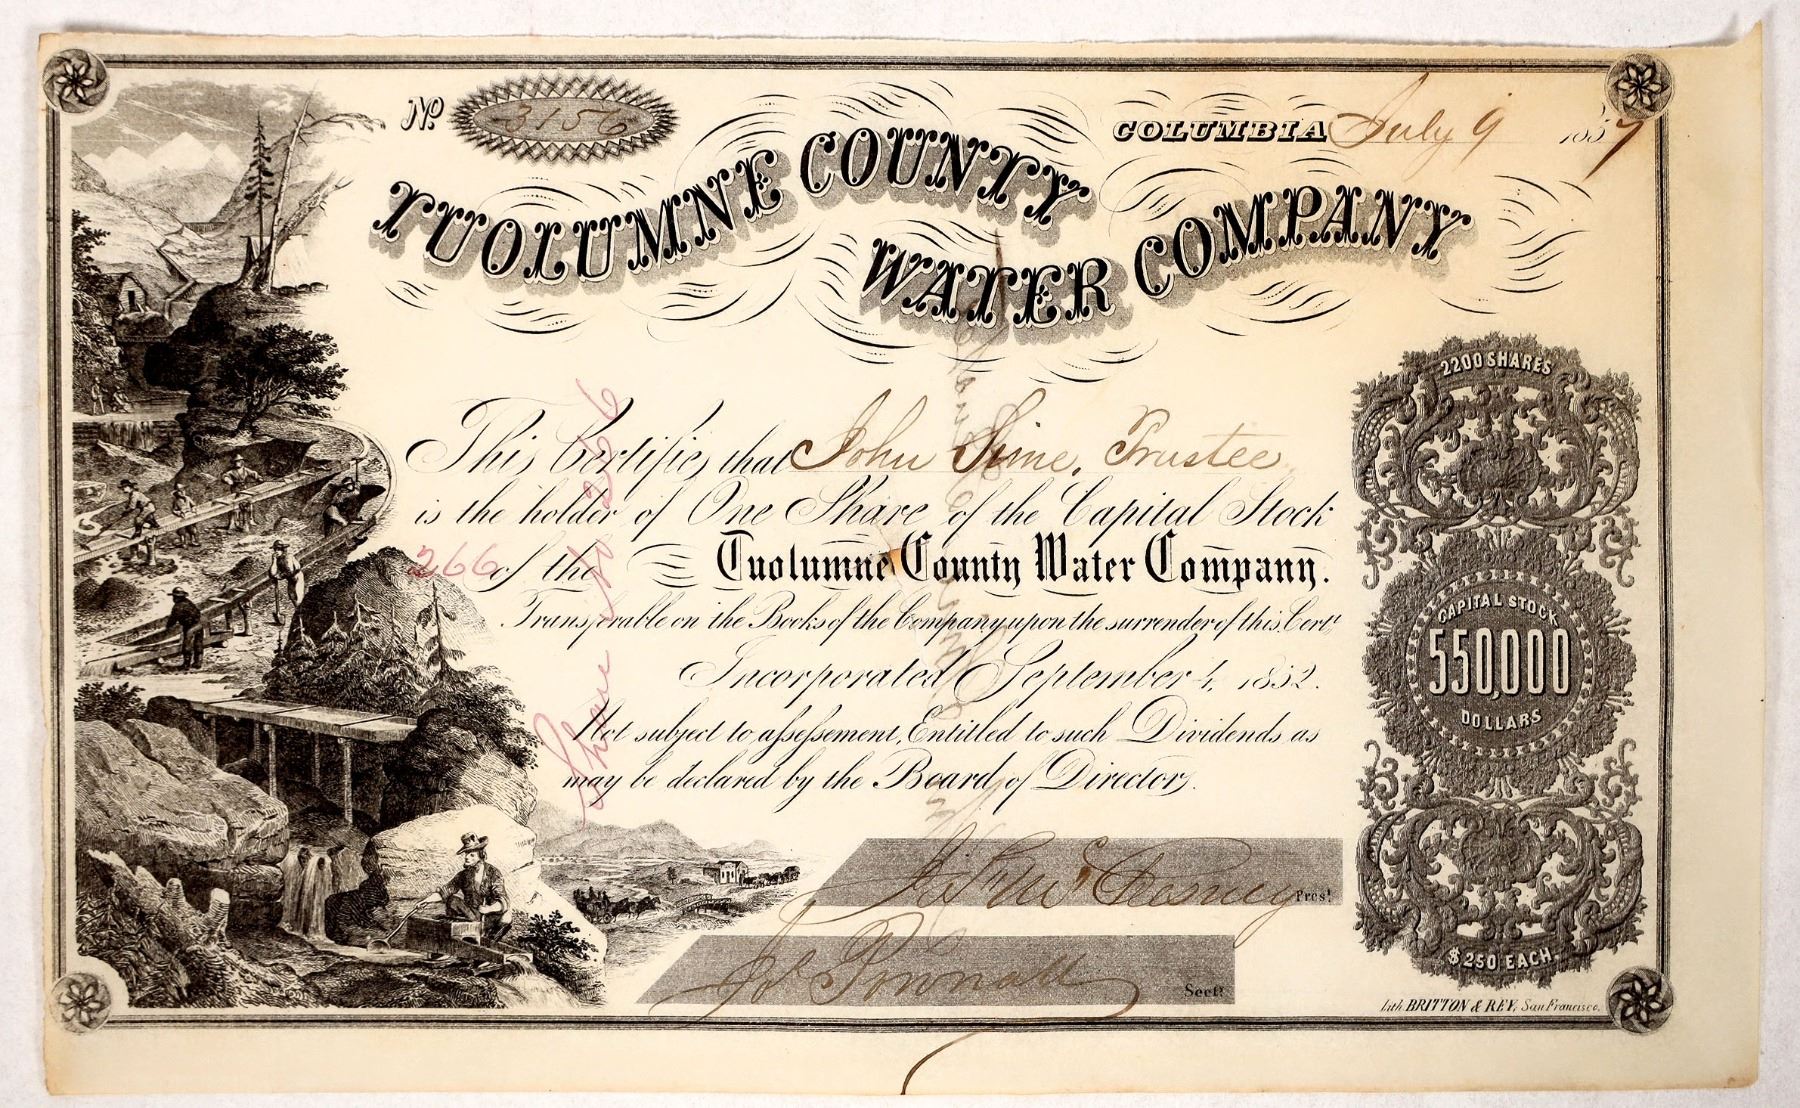 No. 3156
COLUMBIA July 9 1857
TUOLUMNE COUNTY
WATER COMPANY
2200 SHARES
This Certifies that John Sime, Trustee
is the holder of One Share of the Capital Stock
266 of the Tuolumne County Water Company.
Transferable on the Books of the Company upon the surrender of this Cert.
Incorporated September 4, 1852.
Not subject to assessment, Entitled to such Dividends as
may be declared by the Board of Directors.
Share No 266
CAPITAL STOCK
550,000
DOLLARS
Pres't
Jo Pownall
Sect.
$250 EACH.
Lith. BRITTON & REY, San Francisco.